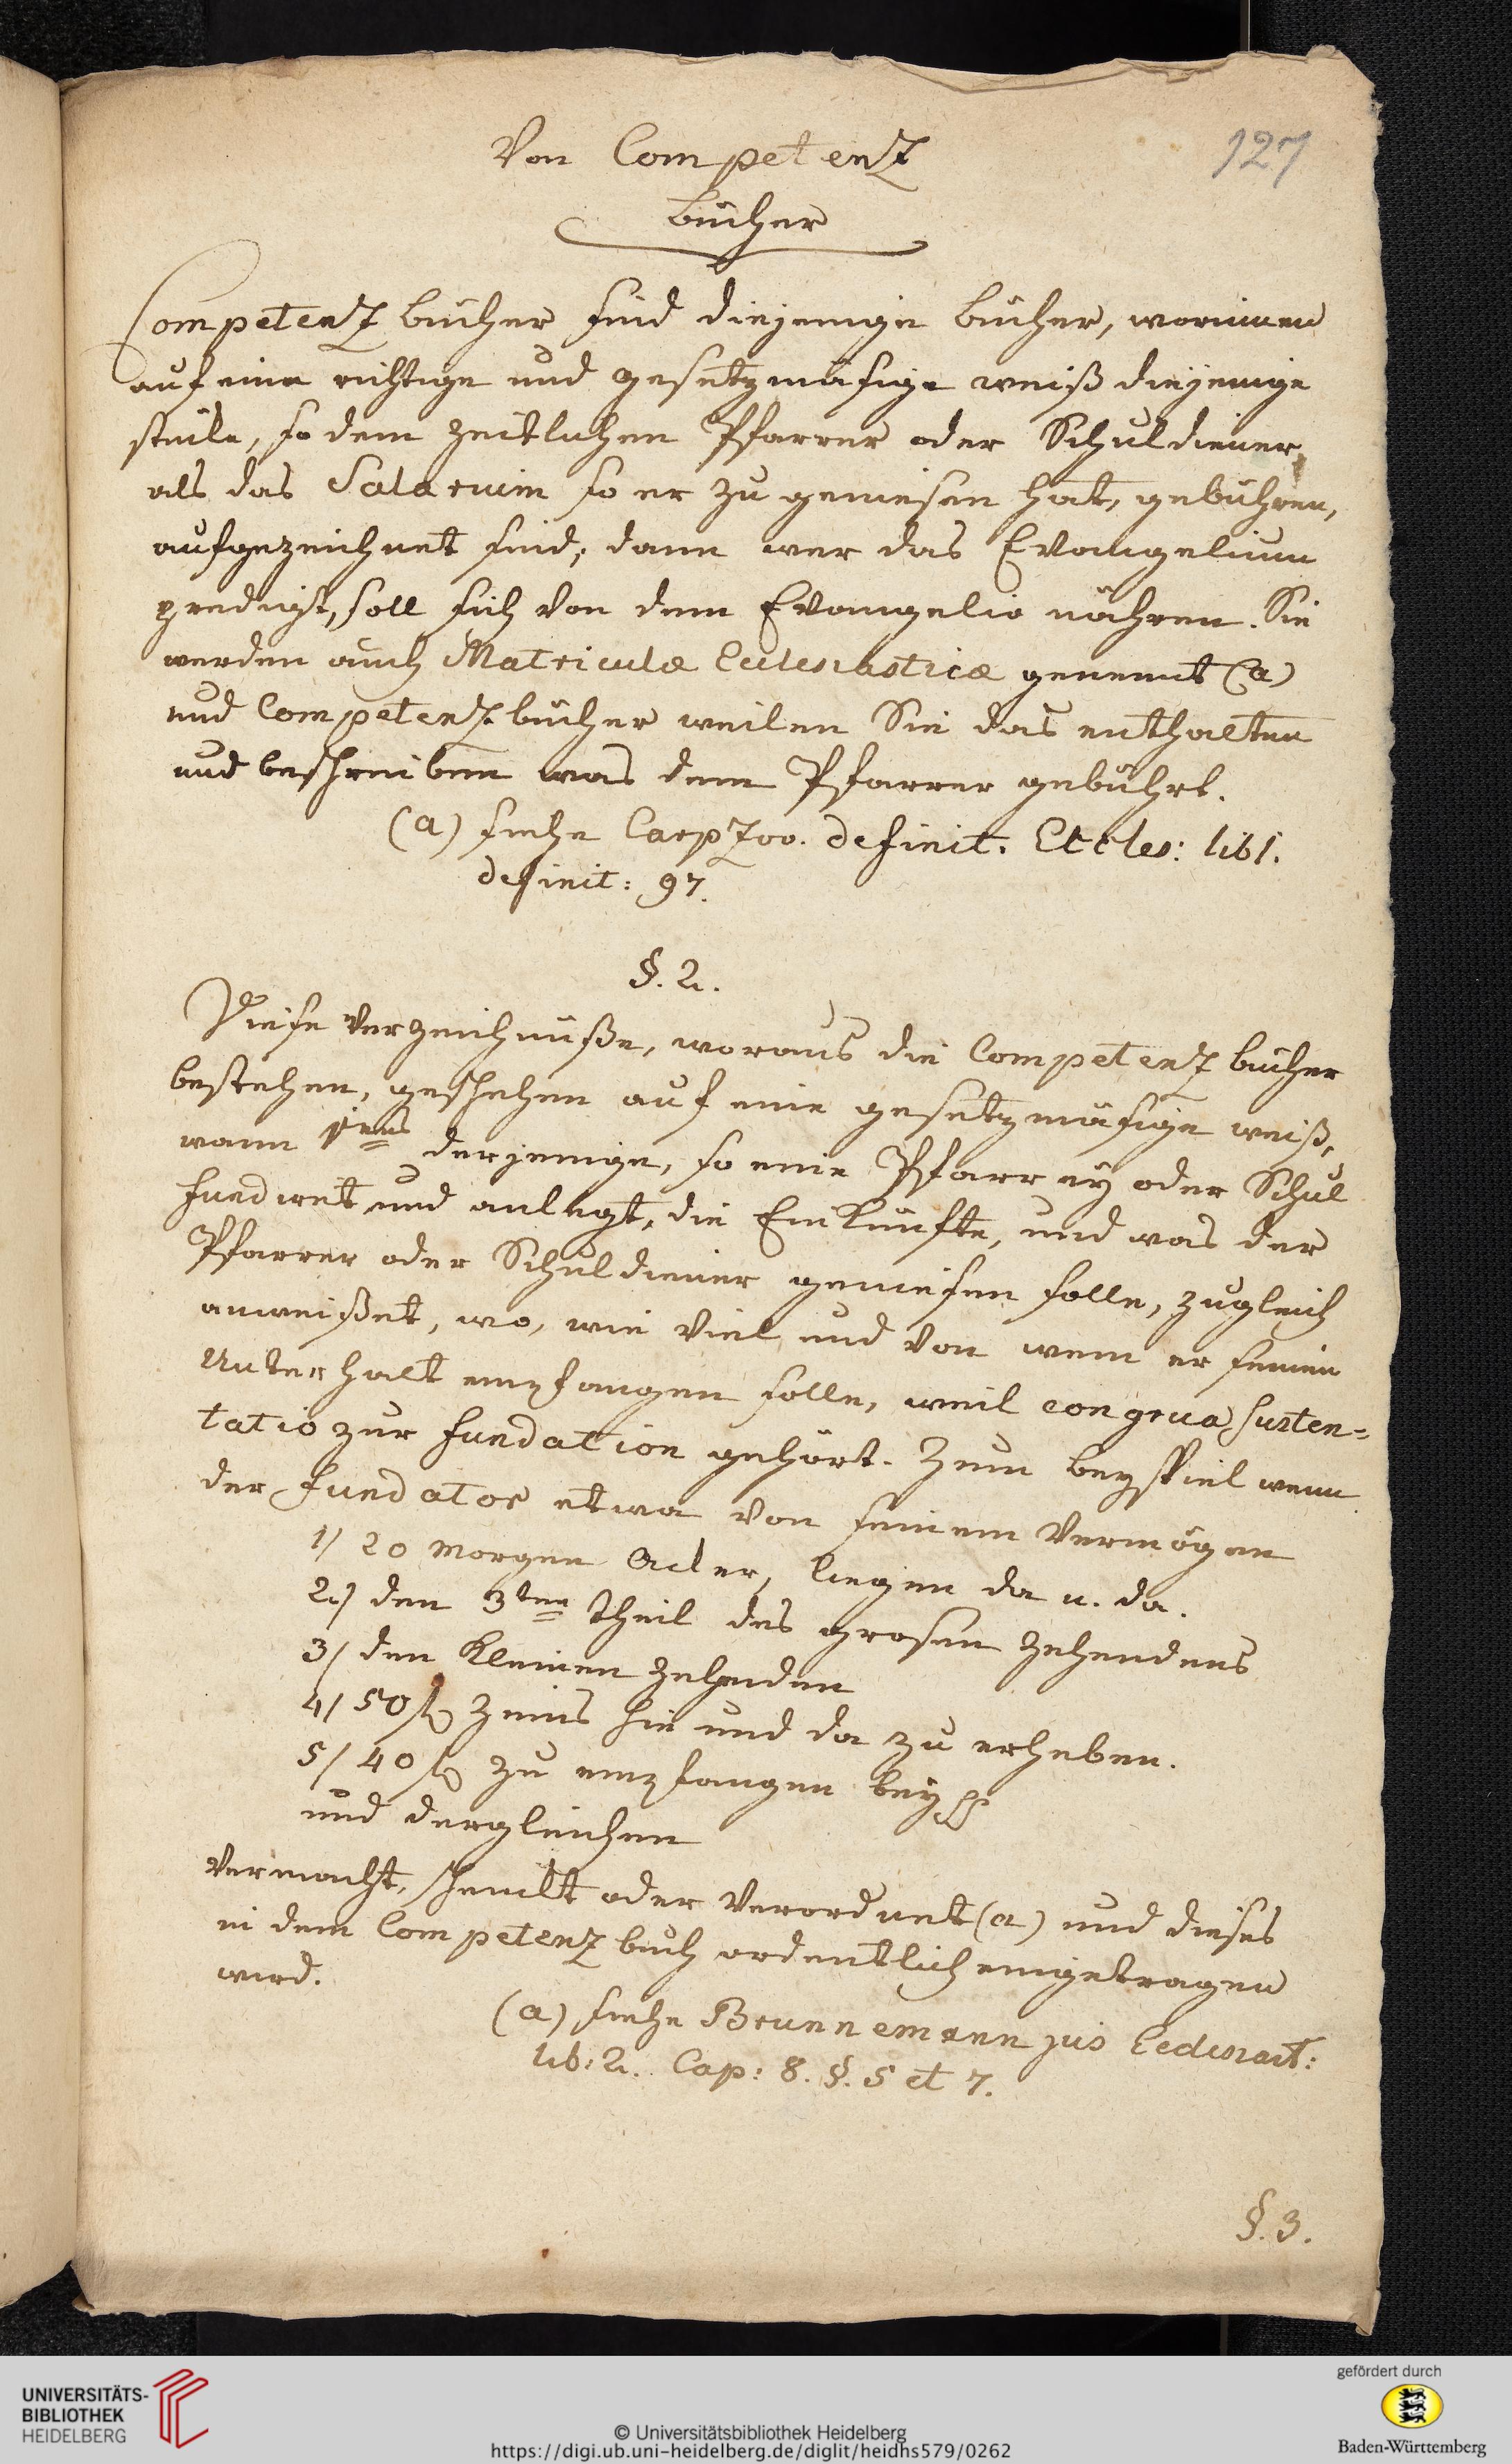 Von Competenz
bücher
127
Competenz bücher sind diejenige bücher, worinnen
auf eine richtige und gesetzmäsige weiß diejenige
stücke, so dem zeitlichen Pfarrer oder Schuldiener,
als das Salarium so er zu geniesen hat, gebühren,
aufgezeichnet sind, dann wer das Evangelium
predigt, soll sich von dem Evangelio nähren. Sie
werden auch Matriculæ Ecclesiasticæ genennt (a)
und Competenz bücher weilen Sie das enthalten
und beschreiben was dem Pfarrer gebührt.
(a) siehe Carpzov. definit. Eccles: lib 1.
definit: 97.
§. 2.
Diese Verzeichnüße, woraus die Competenz bücher
bestehen, geschehen auf eine gesetzmäsige weiß,
wann 1tens derjenige, so eine Pfarrey oder Schul
fundiret und anlegt, die Einkünfte, und was der
Pfarrer oder Schuldiener geniesen solle, zugleich
anweißet, wo, wie viel und von wem er seinen
Unterhalt empfangen solle, weil congrua susten=
tatio zur fundation gehört. Zum beyspiel wenn
der fundator etwa von seinem Vermögen
1/ 20 morgen Acker, liegen da u. da.
2/ den 3ten theil des grosen Zehendens
3/ den Kleinen Zehenden
4/ 50 fl Zinns hie und da zu erheben.
5/ 40 fl zu empfangen bey
und dergleichen
vermacht, schenckt oder verordnet (a) und dieses
in dem Competenz buch ordentlich eingetragen
wird.
(a) siehe Brunnemann jus Ecclesiast:
lib: 2. Cap: 8. §. 5 et 7.
§. 3.
UNIVERSITÄTS-
BIBLIOTHEK
HEIDELBERG
© Universitätsbibliothek Heidelberg
https://digi.ub.uni-heidelberg.de/diglit/heidhs579/0262
gefördert durch
Baden-Württemberg